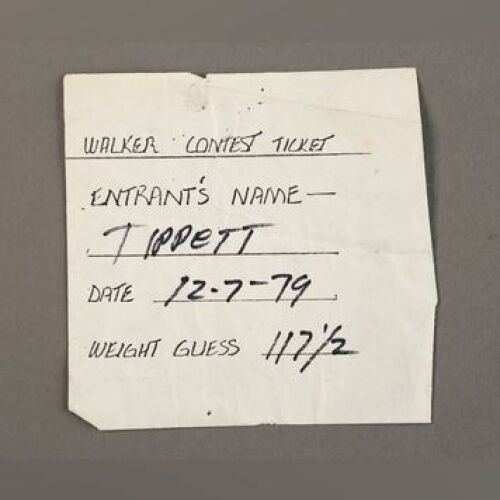 WALKER CONTEST TICKET
ENTRANT'S NAME—
TIPPETT
DATE 12-7-79
WEIGHT GUESS 117 1/2